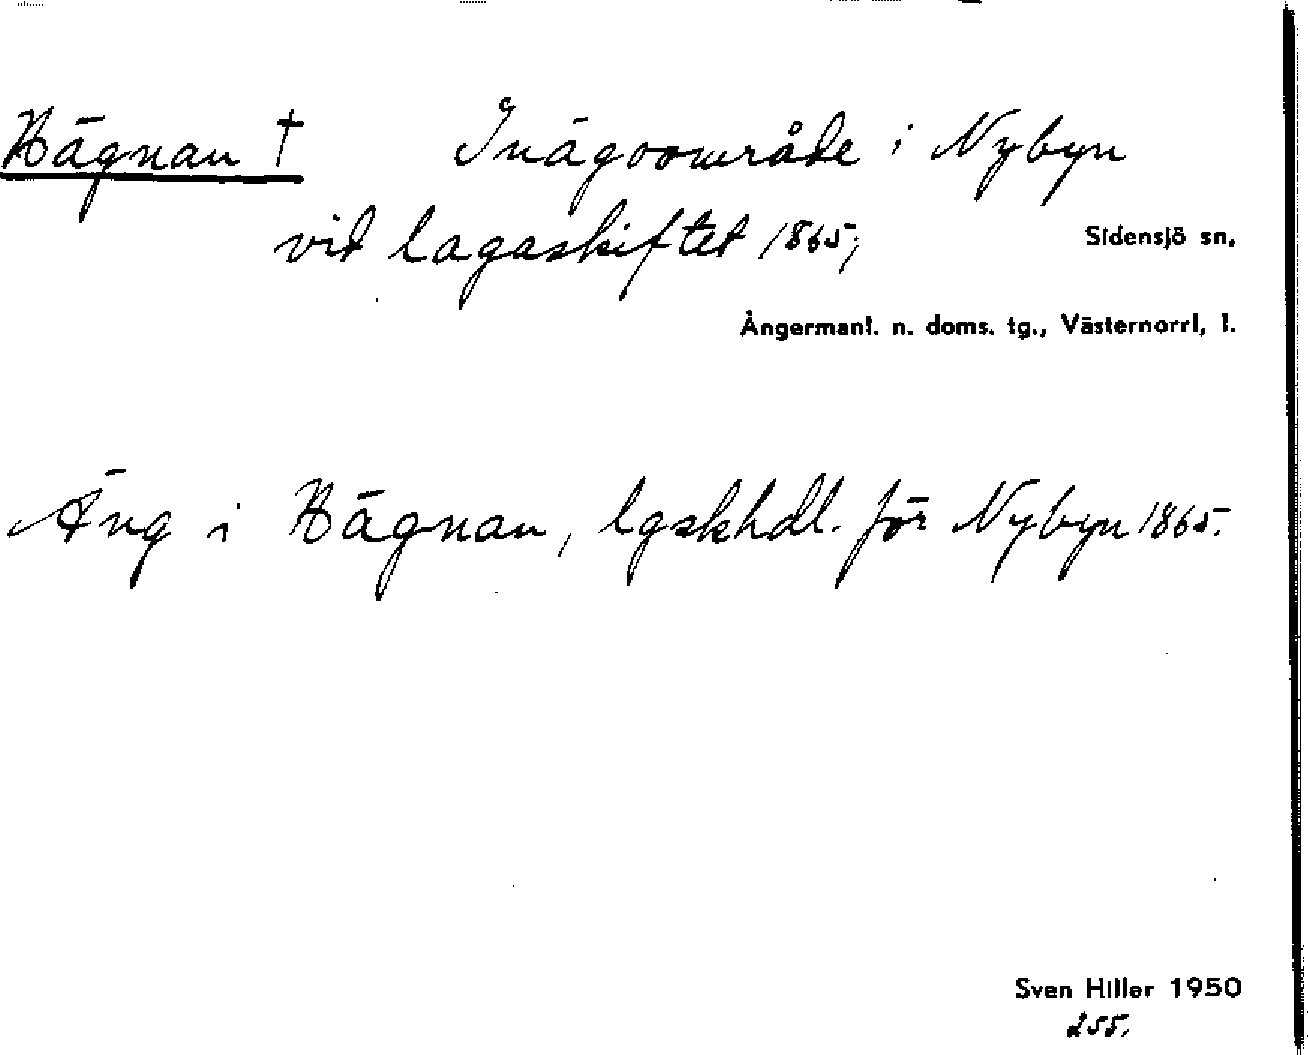 Hägnan † Inägoområde i Nybyn
vid lagaskiftet 1865,
Sidensjö sn,
Ångermanl. n. doms. tg., Västernorrl, l.
Äng i Hägnan, lgskhdl. för Nybyn 1865.
Sven Hiller 1950
255.